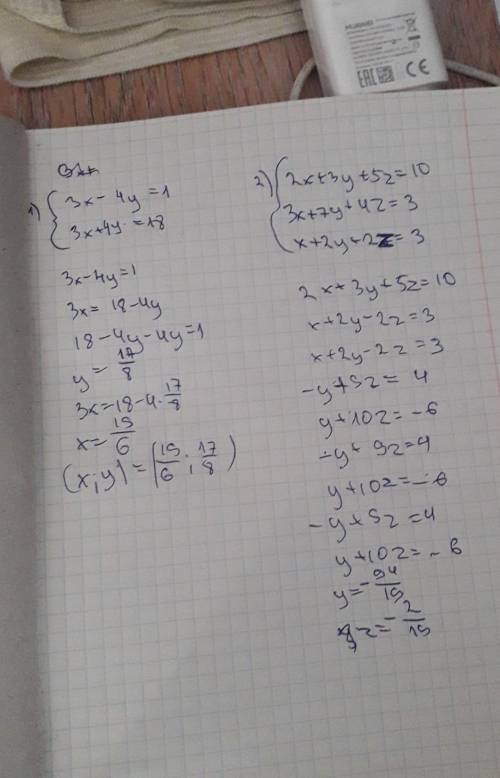 HUAWEI
EAC CE
1) { 3x - 4y = 1
3x + 4y = 18
3x - 4y = 1
3x = 18 - 4y
18 - 4y - 4y = 1
y = 17/8
3x = 18 - 4 · 17/8
x = 19/6
(x; y) = (19/6; 17/8)
2) { 2x + 3y + 5z = 10
3x + 7y + 4z = 3
x + 2y + 2z = 3
2x + 3y + 5z = 10
x + 2y - 2z = 3
x + 2y - 2z = 3
-y + 9z = 4
y + 10z = -6
-y + 9z = 4
y + 10z = -6
-y + 9z = 4
y + 10z = -6
y = -94/19
z = -2/19